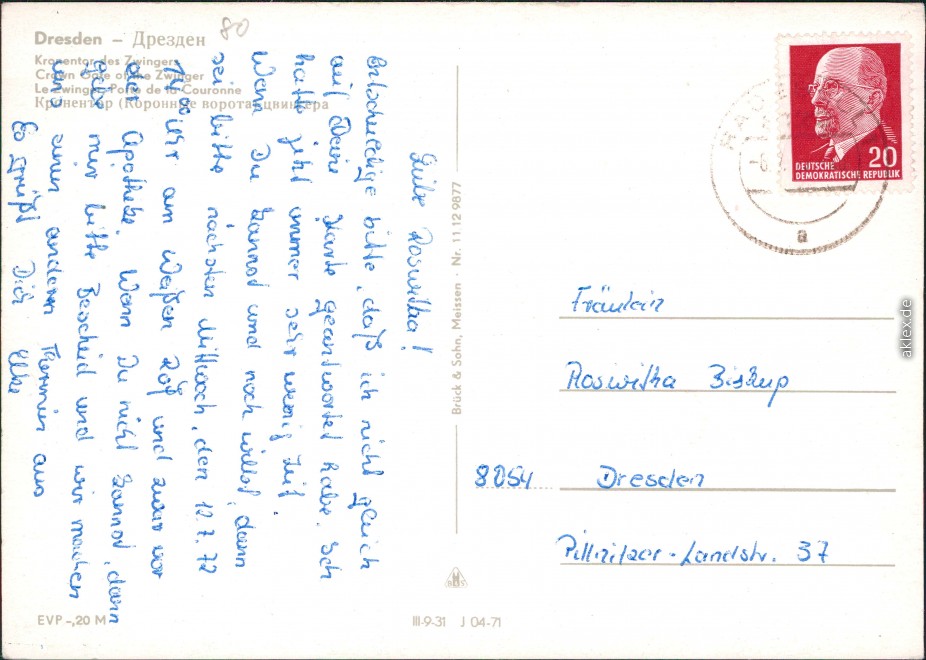 80
Dresden – Дрезден
Kronentor des Zwingers
Crown Gate of the Zwinger
Le Zwinger, Porte de la Couronne
Кронентор (Коронные ворота) цвингера
Liebe Roswitha!
Entschuldige bitte, daß ich nicht gleich
auf Deine Karte geantwortet habe. Ich
hatte jetzt immer sehr wenig Zeit.
Wenn Du kannst und noch willst, dann
sei bitte nächsten Mittwoch, den 12.7.72
Uhr am Weißen Roß und zwar vor
der Apotheke. Wenn Du nicht kannst, dann
gebe mir bitte Bescheid und wir machen
uns einen anderen Termin aus
Es grüßt Dich Elke
EVP -,20 M
Brück & Sohn, Meissen · Nr. 11 12 9877
III-9-31 J 04-71
DEUTSCHE
DEMOKRATISCHE REPUBLIK
20
a
Fräulein
Roswitha Biskup
8054 Dresden
Pillnitzer-Landstr. 37
aklex.de